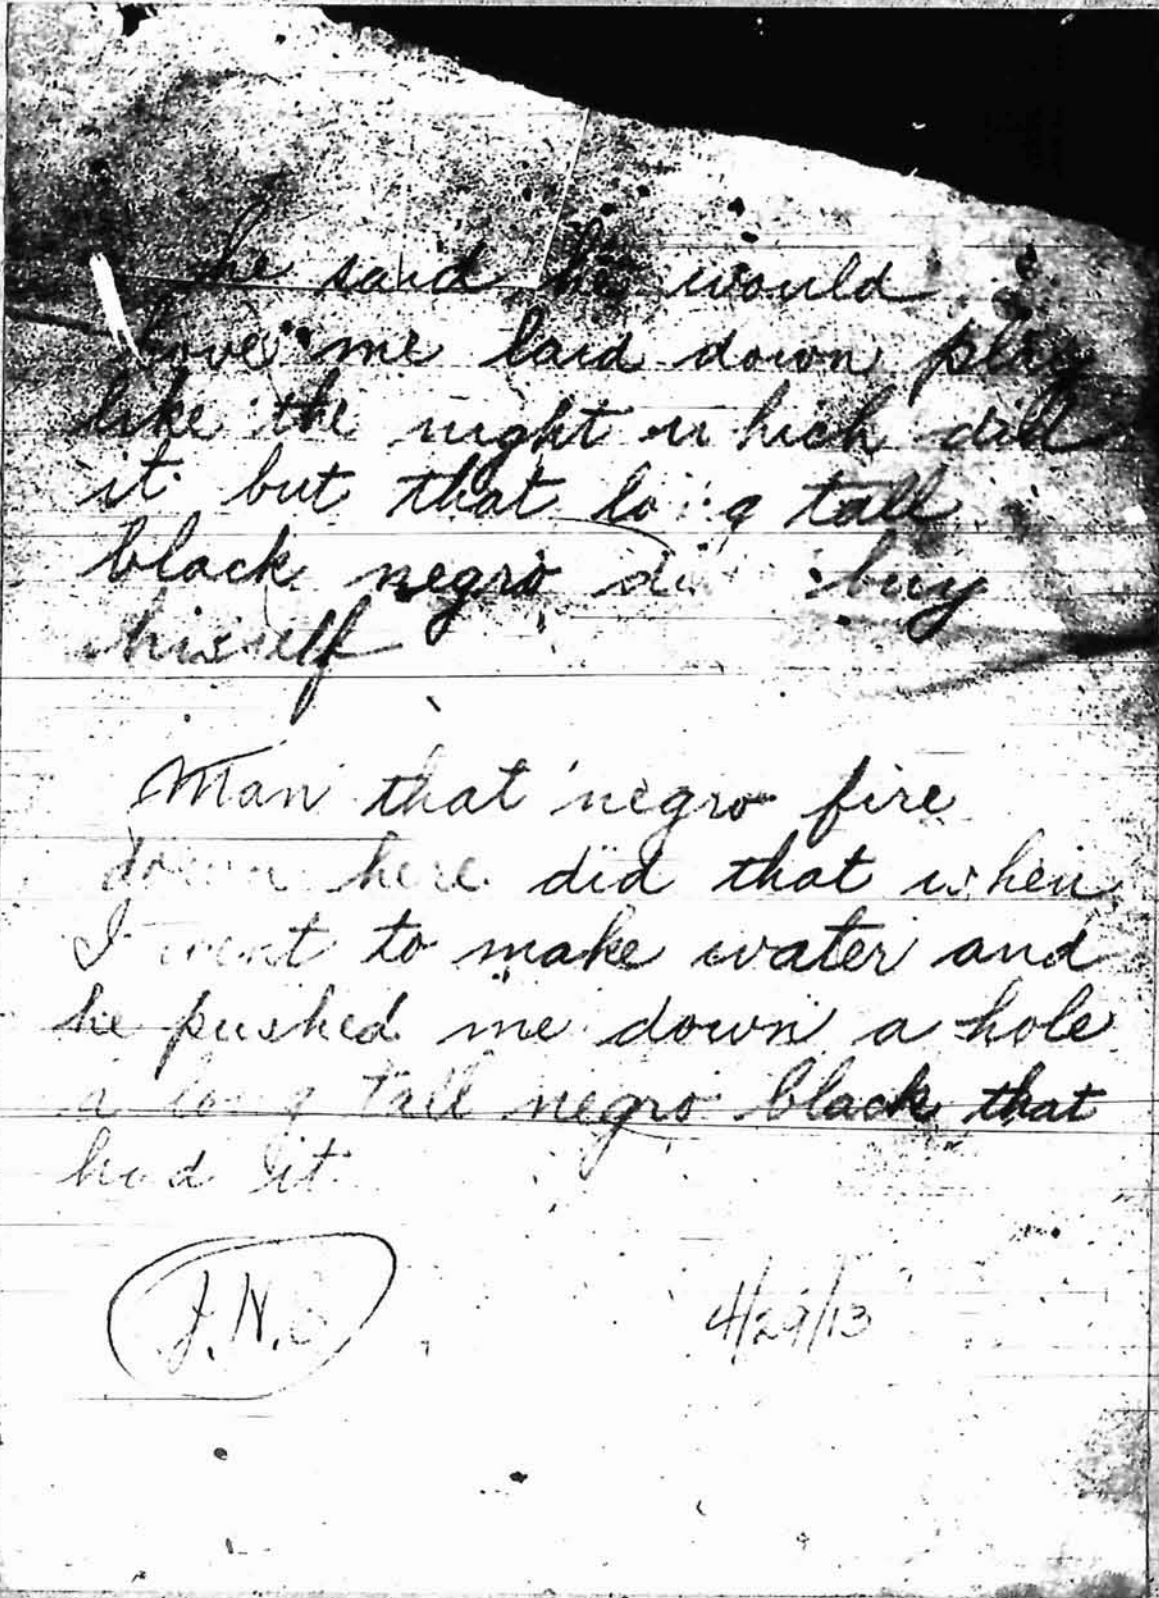 he said he would
love me laid down play
like the night which did
it but that long tall
black negro did buy
hisself
Man that negro fire
down here did that when
I went to make water and
he pushed me down a hole
a long tall negro black that
had it
J.N.
4/29/13